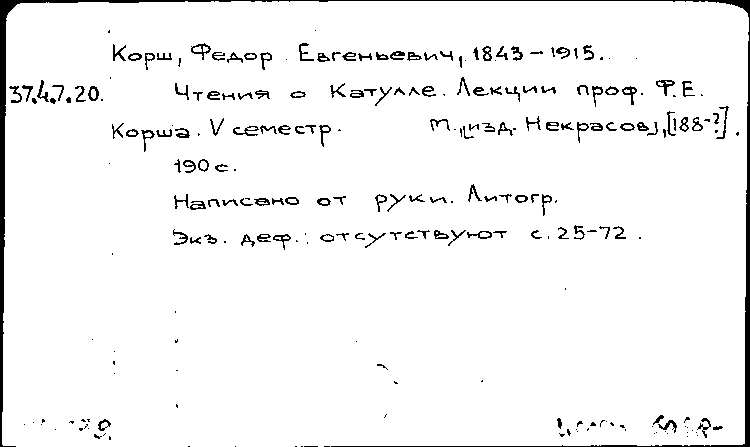 Корш, Федор Евгеньевич, 1843-1915.
37.4.7.20. Чтения о Катулле. Лекции проф. Ф.Е.
Корша. V семестр. М., [изд. Некрасов], [188-?].
190 с.
Написано от руки. Литогр.
Экз. деф.: отсутствуют с. 25-72.